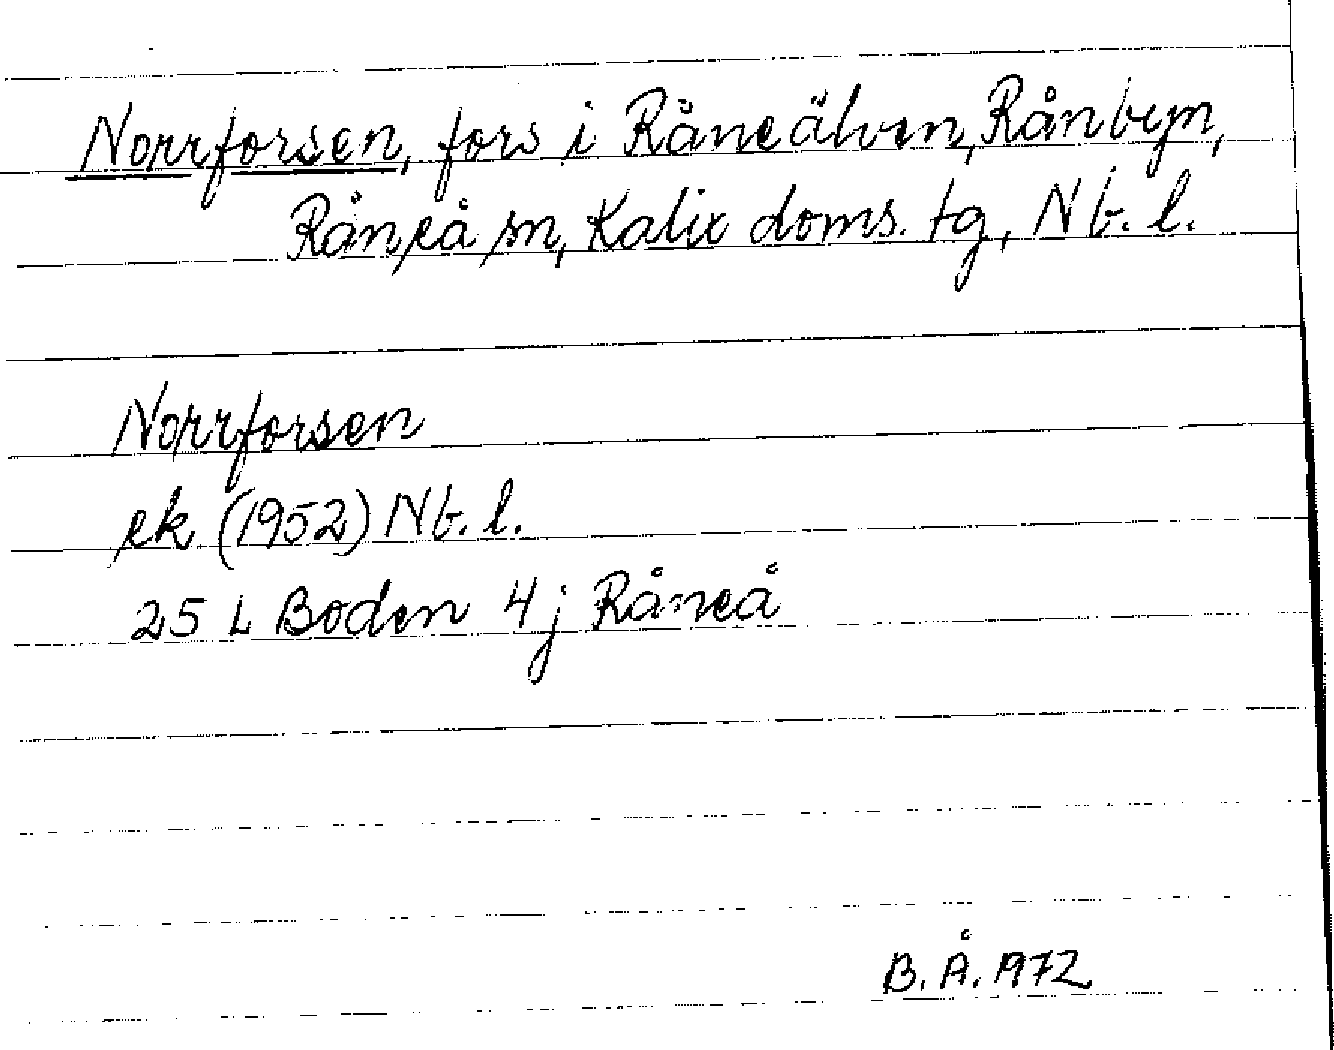 Norrforsen, fors i Råneälven, Rånbyn,
Råneå sn, Kalix doms. tg, Nb. l.
Norrforsen
ek. (1952) Nb. l.
25 L Boden 4 j Råneå
B. Å. 1972